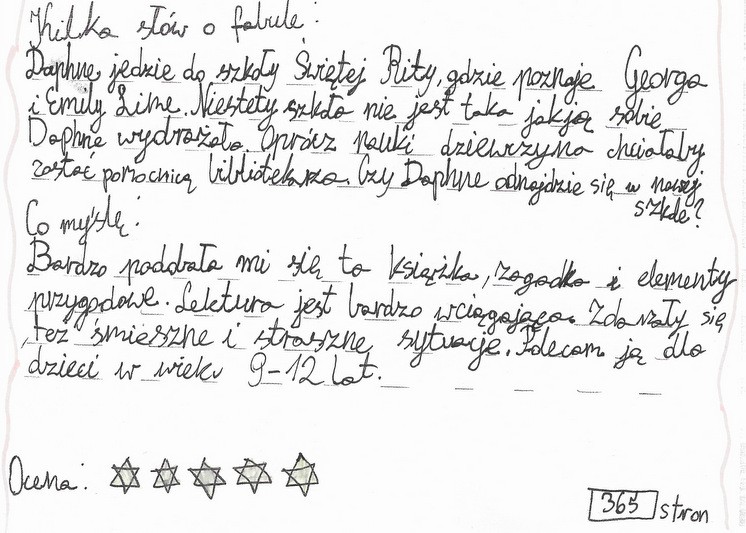 Kilka słów o fabule:
Daphne jedzie do szkoły Świętej Rity, gdzie poznaje Georga
i Emily Lime. Niestety szkoła nie jest taka jaką sobie
Daphne wydrażała. Oprócz nauki dziewrzyna chciałaby
zostać pomocnicą bibliotekarza. Czy Daphne odnajdzie się w nowej
szkole?
Co myślę:
Bardzo podobała mi się ta książka, zagadka i elementy
przygodowe. Lektura jest bardzo wciągająca. Zdarzały się
też śmieszne i straszne sytuacje. Polecam ją dla
dzieci w wieku 9-12 lat.
Ocena:
365 stron